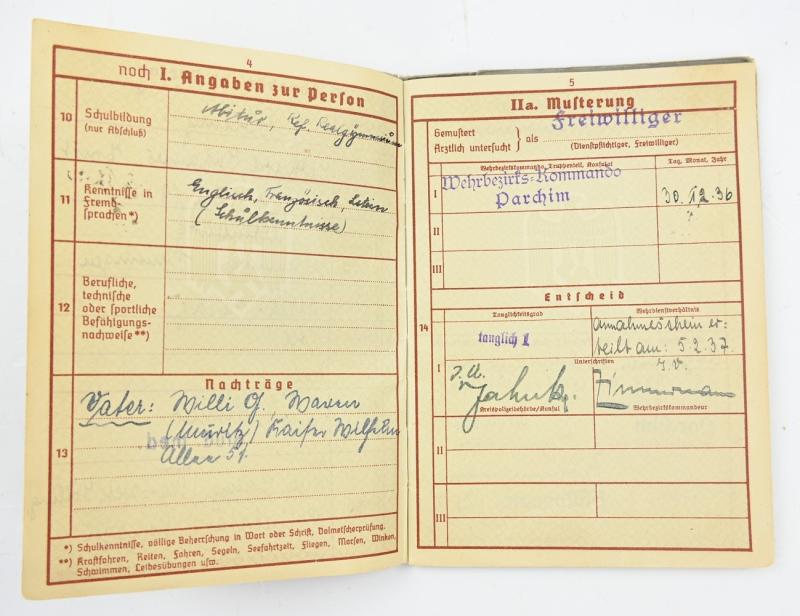 4
noch I. Angaben zur Person
10 Schulbildung
(nur Abschluß)
Abitur, Ref. Realgymnasium
11 Kenntnisse in
Fremd-
sprachen*)
Englisch, Französisch, Latein
(Schulkenntnisse)
12 Berufliche,
technische
oder sportliche
Befähigungs-
nachweise**)
Nachträge
13
Vater: Willi G. Waren
(Müritz) Kaiser Wilhelm
Allee 51.
*) Schulkenntnisse, völlige Beherrschung in Wort oder Schrift, Dolmetscherprüfung.
**) Kraftfahren, Reiten, Fahren, Segeln, Seefahrtzeit, Fliegen, Morsen, Winken,
Schwimmen, Leibesübungen usw.
5
IIa. Musterung
Gemustert
Ärztlich untersucht } als Freiwilliger
(Dienstpflichtiger, Freiwilliger)
Wehrbezirkskommando, Truppenteil, Konsulat Tag, Monat, Jahr
I Wehrbezirks-Kommando
Parchim 30.12.36
II
III
Entscheid
14
Tauglichkeitsgrad Wehrdienstverhältnis
I tauglich 1 Annahmeschein er-
teilt am: 5.2.37.
Unterschriften
I.V.
Zimmermann
Kreispolizeibehörde/Konsul Wehrbezirkskommandeur
II
III